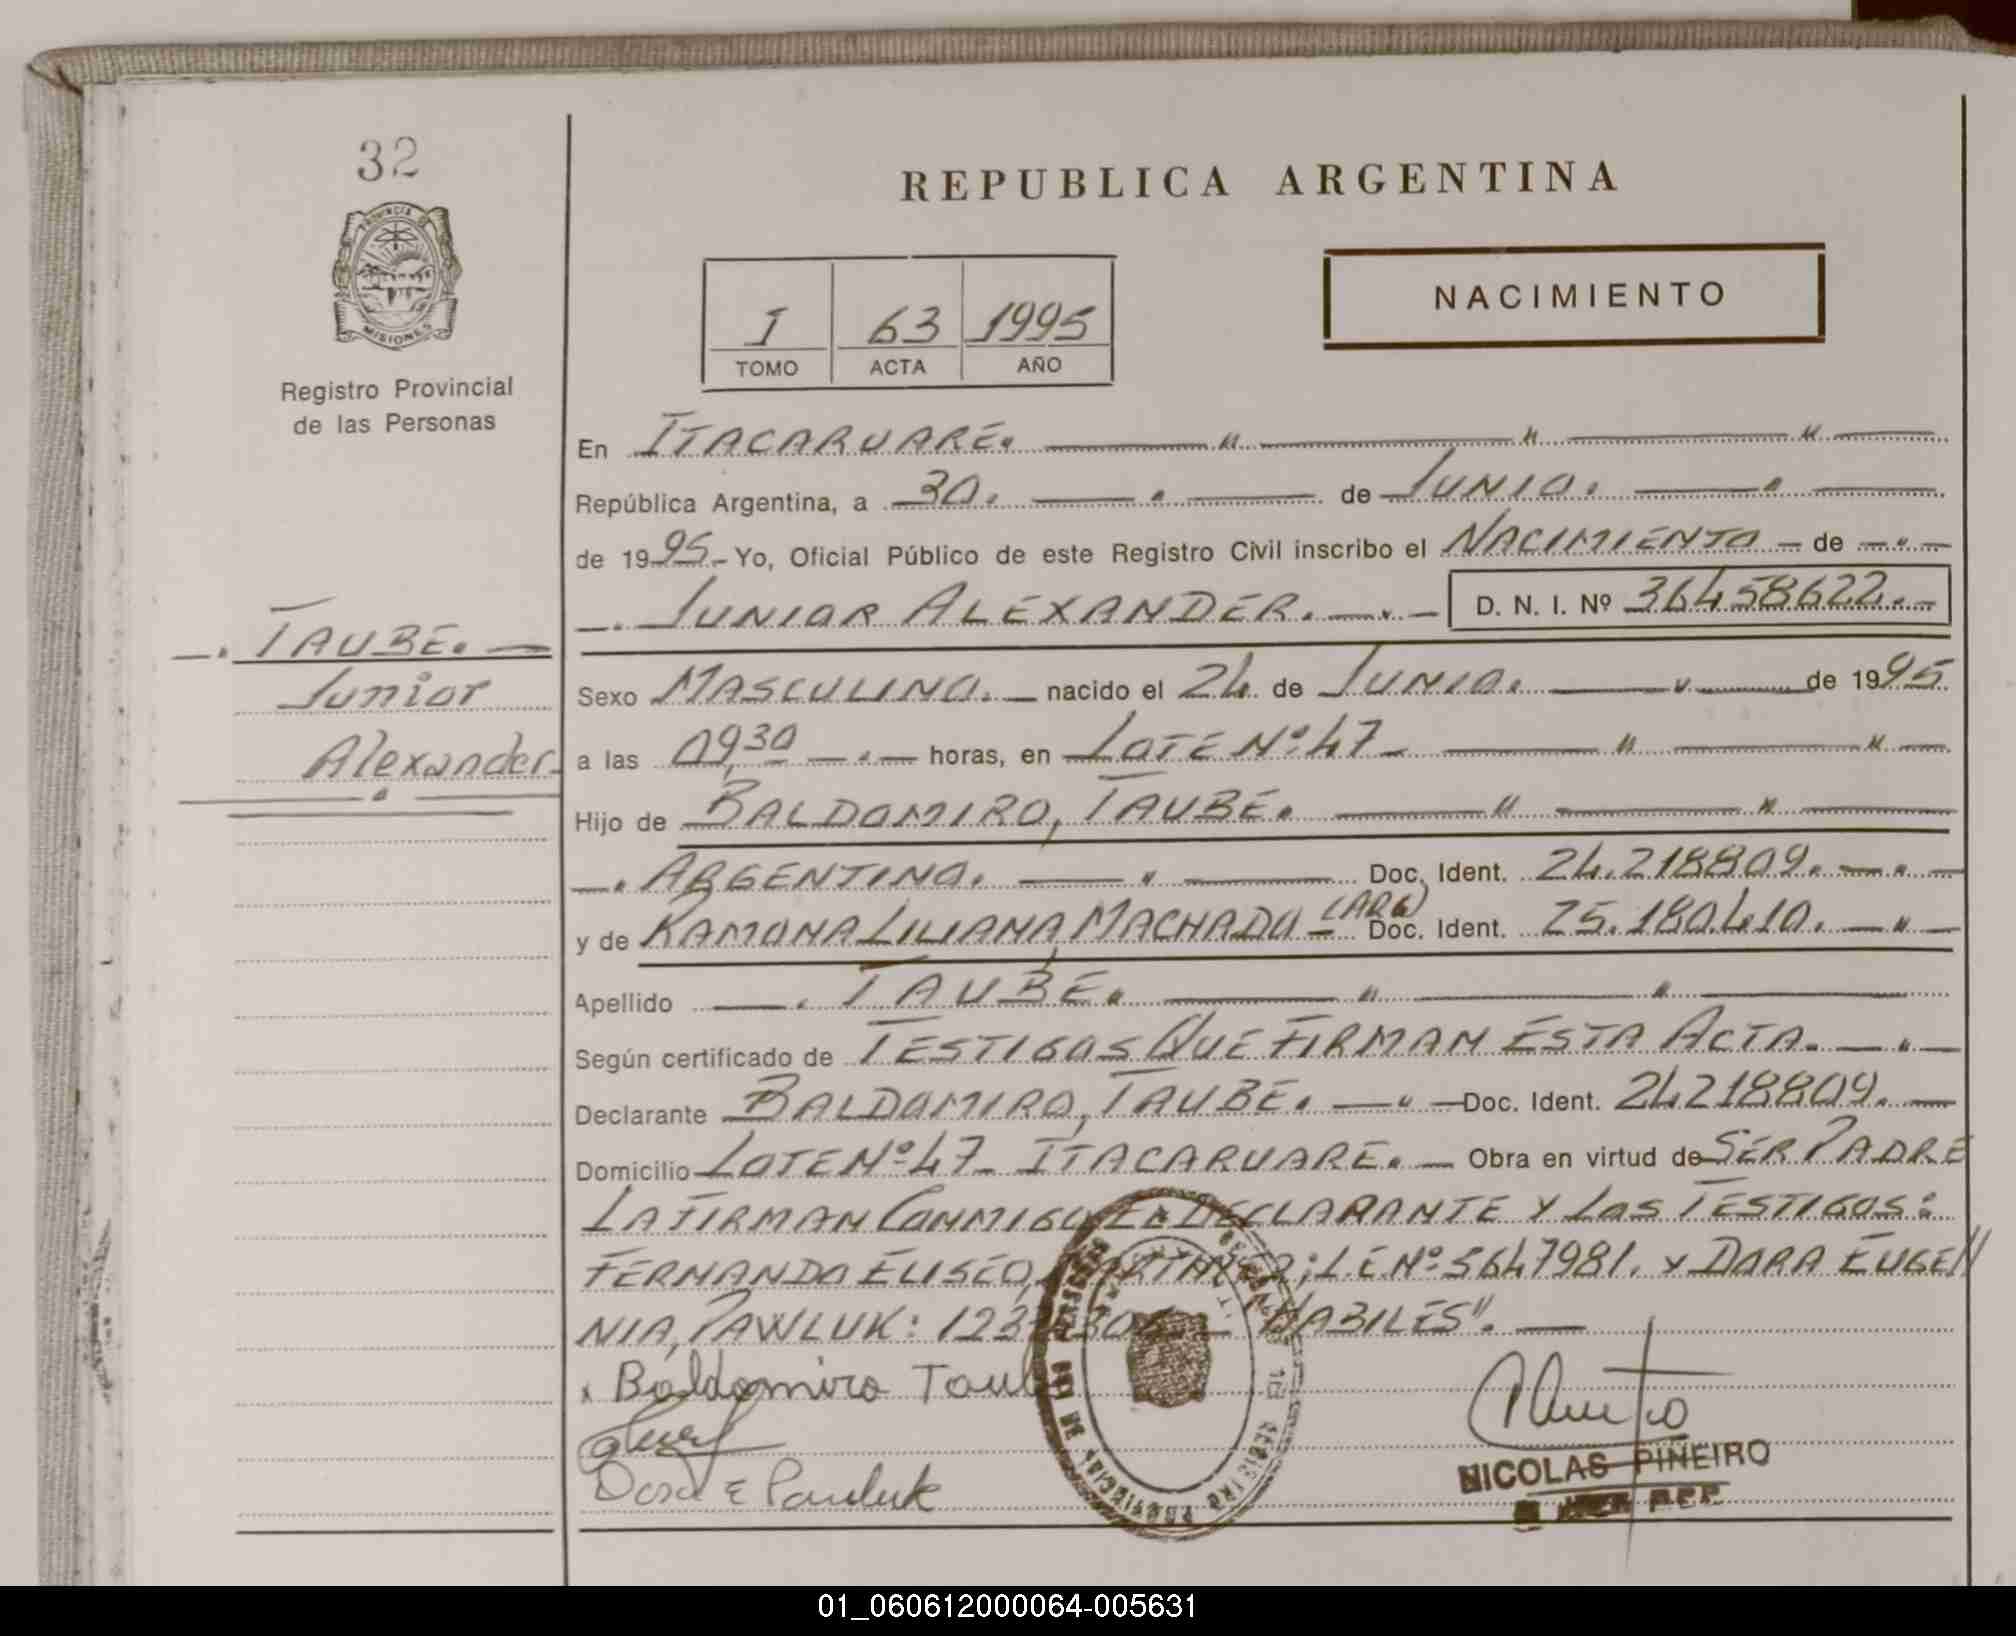 32
PROVINCIA DE
MISIONES
Registro Provincial
de las Personas
TAUBE.
Junior
Alexander
REPUBLICA ARGENTINA
I 63 1995
TOMO ACTA AÑO
NACIMIENTO
En ITACARUARE.
República Argentina, a 30. de JUNIO.
de 1995.- Yo, Oficial Público de este Registro Civil inscribo el NACIMIENTO de
JUNIOR ALEXANDER. D. N. I. Nº 36458622.
Sexo MASCULINO. nacido el 24 de JUNIO. de 1995
a las 09,30 horas, en LOTE Nº 47
Hijo de BALDOMIRO, TAUBE.
ARGENTINO. Doc. Ident. 24.218809.
y de RAMONA LILIANA, MACHADO (ARG) Doc. Ident. 25.180.410.
Apellido TAUBE.
Según certificado de TESTIGOS QUE FIRMAN ESTA ACTA.
Declarante BALDOMIRO, TAUBE. Doc. Ident. 24218809.
Domicilio LOTE Nº 47 ITACARUARE. Obra en virtud de SER PADRE
LA FIRMAN CONMIGO EL DECLARANTE Y LOS TESTIGOS:
FERNANDO ELISEO, L.E.Nº 5647981. Y DORA EUGE
NIA, PAWLUK: "HABILES".
x Baldomiro Taube
Dora E Pauluk
NICOLAS PIÑEIRO
REGISTRO PROVINCIAL DE LAS PERSONAS
01_060612000064-005631